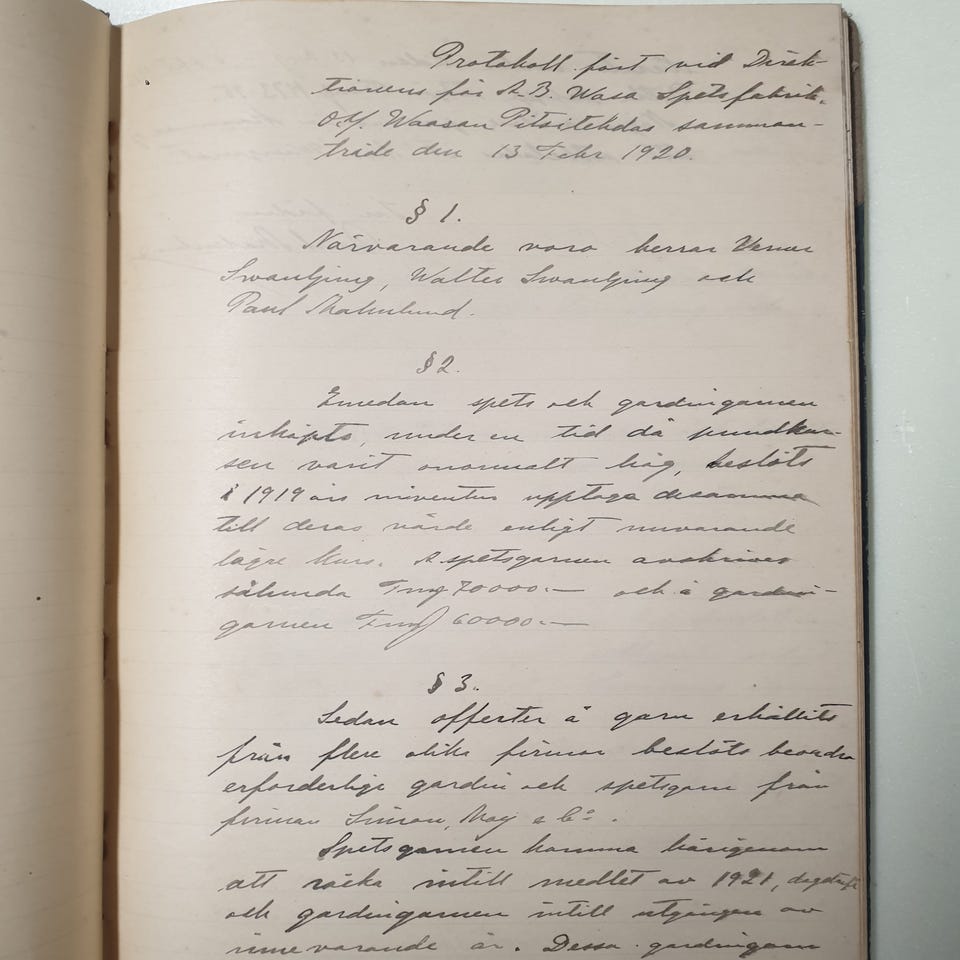 Protokoll fört vid Direk-
tionens för A.B. Wasa Spetsfabrik.
O.Y. Waasan Pitsitehdas samman-
träde den 13 Febr 1920.
§ 1.
Närvarande voro herrar Verner
Swanljung, Walter Swanljung och
Paul Malmlund.
§ 2.
Emedan spets och gardingarnen
inköpts, under en tid då pundkur-
sen varit onormalt hög, beslöts
i 1919 års inventur upptaga desamma
till deras värde enligt nuvarande
lägre kurs. Å spetsgarnen avskrives
sålunda Fmg 70000:— och å gardin-
garnen Fmg 60000:—
§ 3.
Sedan offerter å garn erhållits
från flere olika firmor beslöts beordra
erforderlige gardin och spetsgarn från
firman Simon, May & Cº.
Spetsgarnen komma härigenom
att räcka intill medlet av 1921,
och gardingarnen intill utgången av
innevarande år. Dessa gardingarn